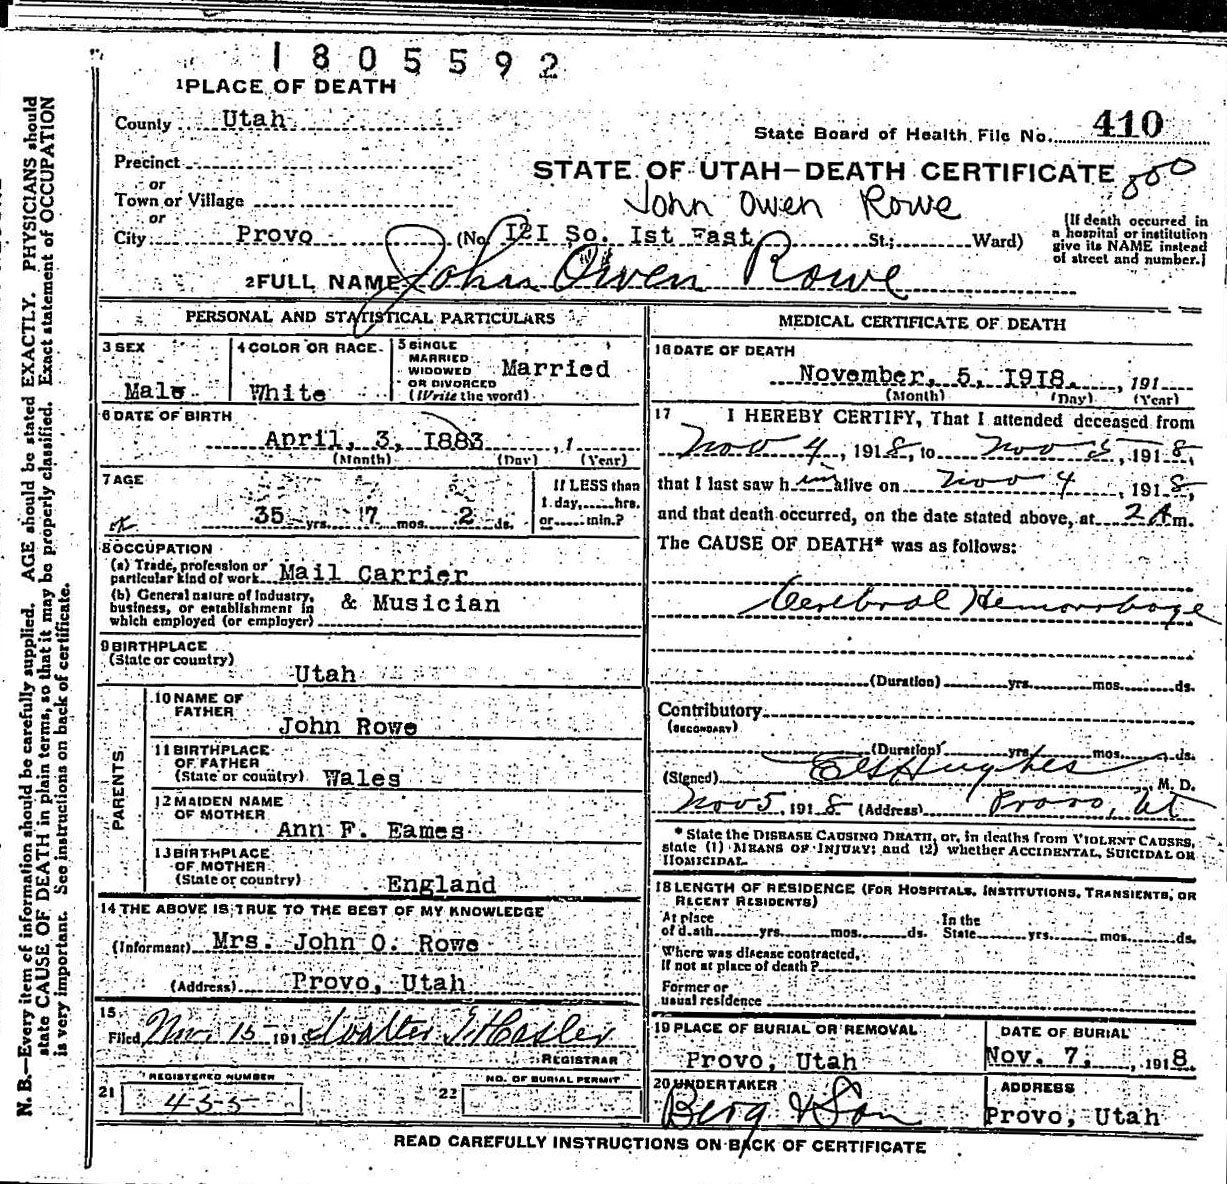 1805592
1 PLACE OF DEATH
County Utah
State Board of Health File No. 410
Precinct
STATE OF UTAH—DEATH CERTIFICATE
or
Town or Village
John Owen Rowe
or
City Provo (No. 121 So. 1st East St.; Ward)
(If death occurred in
a hospital or institution
give its NAME instead
of street and number.)
2 FULL NAME John Owen Rowe
PERSONAL AND STATISTICAL PARTICULARS
3 SEX
Male
4 COLOR OR RACE
White
5 SINGLE
MARRIED
WIDOWED
OR DIVORCED
(Write the word)
Married
6 DATE OF BIRTH
April, 3, 1883, 1
(Month) (Day) (Year)
7 AGE
35 yrs. 7 mos. 2 ds.
If LESS than
1 day, hrs.
or min.?
8 OCCUPATION
(a) Trade, profession or
particular kind of work Mail Carrier
(b) General nature of industry,
business, or establishment in
which employed (or employer)
& Musician
9 BIRTHPLACE
(State or country)
Utah
PARENTS
10 NAME OF
FATHER
John Rowe
11 BIRTHPLACE
OF FATHER
(State or country) Wales
12 MAIDEN NAME
OF MOTHER
Ann F. Eames
13 BIRTHPLACE
OF MOTHER
(State or country)
England
14 THE ABOVE IS TRUE TO THE BEST OF MY KNOWLEDGE
(Informant) Mrs. John O. Rowe
(Address) Provo, Utah
15
Filed Nov. 15 191 Walter T Hasler
REGISTRAR
21 REGISTERED NUMBER
435
22 NO. OF BURIAL PERMIT
MEDICAL CERTIFICATE OF DEATH
16 DATE OF DEATH
November, 5, 1918. , 191
(Month) (Day) (Year)
17 I HEREBY CERTIFY, That I attended deceased from
Nov 4, 1918, to Nov 5, 1918,
that I last saw him alive on Nov 4, 1918,
and that death occurred, on the date stated above, at 2 A m.
The CAUSE OF DEATH* was as follows:
Cerebral Hemorrhage
(Duration) yrs. mos. ds.
Contributory
(SECONDARY)
(Duration) yrs. mos. ds.
(Signed) E G Hughes M. D.
Nov 5, 1918 (Address) Provo, Ut
* State the DISEASE CAUSING DEATH, or, in deaths from VIOLENT CAUSES,
state (1) MEANS OF INJURY; and (2) whether ACCIDENTAL, SUICIDAL OR
HOMICIDAL.
18 LENGTH OF RESIDENCE (FOR HOSPITALS, INSTITUTIONS, TRANSIENTS, OR
RECENT RESIDENTS)
At place
of death yrs. mos. ds.
In the
State yrs. mos. ds.
Where was disease contracted,
If not at place of death?
Former or
usual residence
19 PLACE OF BURIAL OR REMOVAL
Provo, Utah
DATE OF BURIAL
Nov. 7, , 1918.
20 UNDERTAKER
Berg & Son
ADDRESS
Provo, Utah
READ CAREFULLY INSTRUCTIONS ON BACK OF CERTIFICATE
N. B.—Every item of information should be carefully supplied. AGE should be stated EXACTLY. PHYSICIANS should
state CAUSE OF DEATH in plain terms, so that it may be properly classified. Exact statement of OCCUPATION
is very important. See instructions on back of certificate.